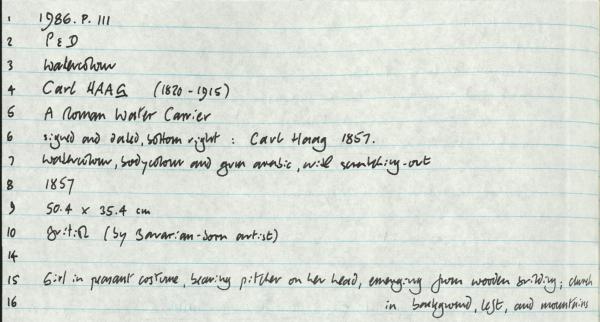 1 1986.P.111
2 P & D
3 Watercolour
4 Carl HAAG (1820-1915)
5 A Roman Water Carrier
6 signed and dated, bottom right : Carl Haag 1857.
7 Watercolour, bodycolour and gum arabic, with scratching-out
8 1857
9 50.4 x 35.4 cm
10 British (by Bavarian-born artist)
14
15 Girl in peasant costume, bearing pitcher on her head, emerging from wooden building; church
16 in background, left, and mountains